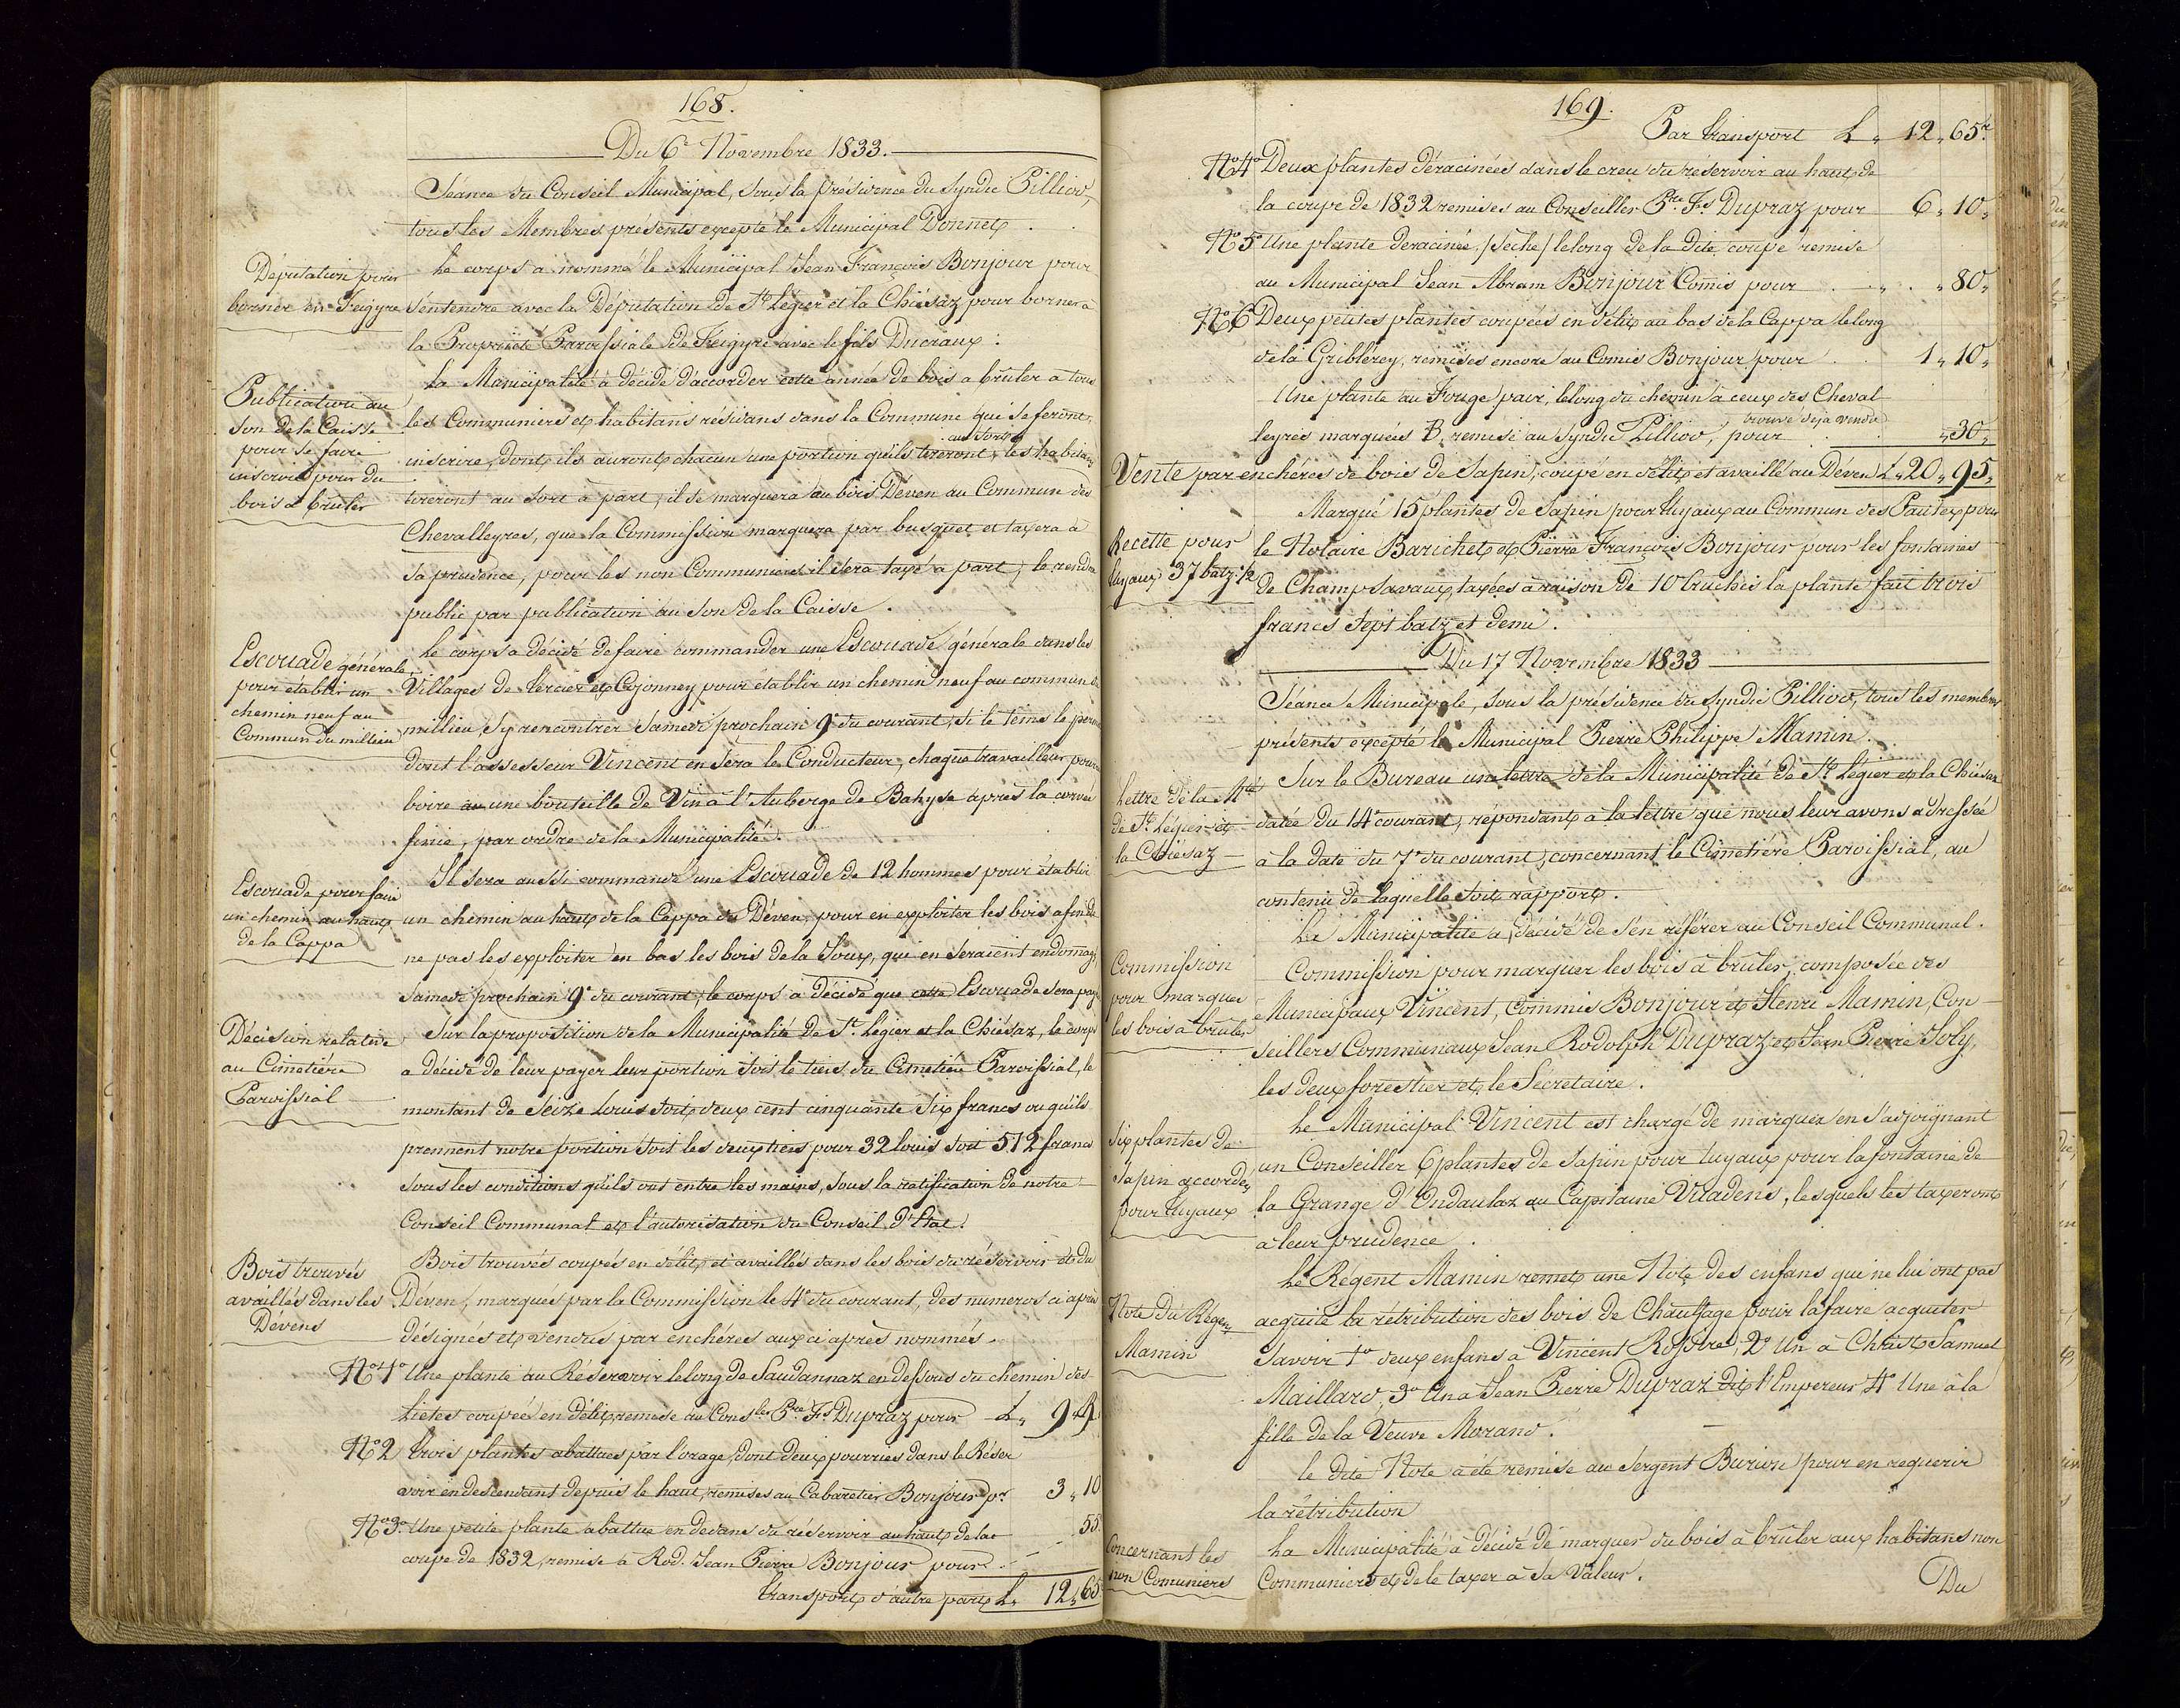 168.
Du 6e Novembre 1833.
Séance du Conseil Municipal, sous la présidence du Syndic Pilliod,
tous les Membres présents excepté le Municipal Donnet.
Députation pour
borner en Feigyre
Le corps a nommé le Municipal Jean François Bonjour pour
s'entendre avec la Députation de St Légier et la Chiésaz pour borner à
la Propriété Paroissiale de Feigyre avec le fils Ducraux.
Publication au
son de la Caisse
pour se faire
inscrire pour du
bois à brûler
La Municipalité à décidé d'accorder cette année de bois a brûler a tous
les Communiers et habitans résidans dans la Commune qui se feront
inscrire, dont ils auront chacun une portion qu'ils tireront au sort, les habitans
tireront au sort à part, il se marquera au bois Déven au Commun des
Chevalleyres, que la Commission marquera par busquet et taxera à
sa prudence, pour les non Communiers il sera taxé à part, le rendre
public par publication au son de la Caisse.
Escouade générale
pour établir un
chemin neuf au
Commun du millieu
Le corps a décidé de faire commander une Escouade générale dans les
Villages de Tercier et Cojonney pour établir un chemin neuf au commun du
millieu, S'y rencontrer Samedi prochain 9e du courant, Si le tems le permet
dont l'assesseur Vincent en sera le Conducteur, chaque travailleur pourra
boire une bouteille de Vin à l'Auberge de Bahyse après la corvée
finie, par ordre de la Municipalité.
Escouade pour faire
un chemin au haut
de la Cappa
Il sera aussi commandé une Escouade de 12 hommes pour établir
un chemin au haut de la Cappa du Déven, pour en exploiter les bois afin de
ne pas les exploiter en bas les bois de la Joux, qui en seraient endomagé,
Samedi prochain 9e du courant, le corps à décidé que cette Escouade sera payé
Décision relative
au Cimetière
Paroissial
Sur la proposition de la Municipalité de St. Légier et la Chiésaz, le corps
a décidé de leur payer leur portion soit le tiers du Cimetière Paroissial, le
montant de Seize Louis soit deux cent cinquante six francs ou qu'ils
prennent notre portion soit les deux tiers pour 32 louis soit 512 francs
sous les conditions qu'ils ont entre les mains, sous la ratification de notre
Conseil Communal et l'autorisation du Conseil d'Etat.
Bois trouvés
availlés dans les
Dévens
Bois trouvés coupés en délit et availlés dans les bois du réservoir et du
Déven, marqués par la Commission le 4e du courant, des numeros ci après
désignés et vendus par enchères aux ci après nommés.
No 1o Une plante au Réservoir le long de Saudannaz en dessous du chemin des
coupée en délit, remise au Conser Pre Fs Dupraz pour L,, 9
No 2 trois plantes abattues par l'orage, dont deux pourries dans le Réser
voir en descendant depuis le haut, remises au Cabaretier Bonjour pr 3,, 10
No 3o Une petite plante abattue en dedans du réservoir au haut de la 55
coupe de 1832, remise à Rod. Jean Pierre Bonjour pour
transport d'autre part L,, 12,, 65
169.
Par transport L,, 12,, 65r
No 4o Deux plantes déracinées dans le creu du réservoir au haut de
la coupe de 1832 remises au Conseiller Pre Fs Dupraz pour 6,, 10,,
No 5o Une plante déracinée / sèche / le long de la dite coupe remise
au Municipal Jean Abram Bonjour Comis pour ,, 80,,
No 6 Deux petites plantes coupées en délit au bas de la Cappa le long
de la Griblérey, remises encore au Comis Bonjour pour 1,, 10,,
Une plante au Fouge pair, le long du chemin à ceux des Cheval
trouvé déjà vendu
leyres marquées B, remise au Syndic Pilliod, pour ,, 30,,
Vente par enchères de bois de Sapin, coupé en délit et availlé au Déven L,, 20,, 95,,
Recette pour
tuyaux 37 batz 1/2
Marqué 15 plantes de Sapin pour tuyaux au Commun des Pautex pour
le Notaire Barichet et Pierre François Bonjour pour les fontaines
de Champsavaux, taxées à raison de 10 cruches la plante fait trois
francs sept batz et demi.
Du 17 Novembre 1833
Séance Municipale, sous la présidence du Syndic Pilliod, tous les membres
présents excepté le Municipal Pierre Philippe Mamin.
Lettre de la Mté
de St. Légier et
la Chiésaz
Sur le Bureau une lettre de la Municipalité de St. Légier et la Chiésaz
datée du 14e courant, répondant à la lettre que nous leur avons adressée
à la date du 7e du courant, concernant le Cimetière Paroissial, au
contenu de laquelle soit rapport.
La Municipalité a décidé de s'en référer au Conseil Communal.
Commission
pour marquer
les bois à brûler
Commission pour marquer les bois à brûler, composée des
Municipaux Vincent, Commis Bonjour et Henri Mamin, Con
seillers Communaux Jean Rodolph Dupraz et Jean Pierre Joly,
les deux forestier et le Secretaire.
Six plantes de
Sapin accordées
pour tuyaux
Le Municipal Vincent est chargé de marquer en s'adjoignant
un Conseiller 6 plantes de Sapin pour tuyaux pour la fontaine de
la Grange d'Ondaulaz au Capitaine Vuadens, lesquels les taxeront
à leur prudence.
Note du Régent
Mamin
Le Régent Mamin remet une Note des enfans qui ne lui ont pas
acquité la rétribution des bois de Chauffage pour la faire acquiter
Savoir 1o deux enfans à Vincent Rossire, 2o Un à Christ Samuel
Maillard, 3o Un à Jean Pierre Dupraz dit l'Empereur 4o Une à la
fille de la Veuve Morand.
le dite Note à été remise au Sergent Burion pour en requerir
la rétribution
Concernant les
non Comuniers
La Municipalité à décidé de marquer du bois à brûler aux habitans non
Communiers et de le taxer à sa Valeur.
Du